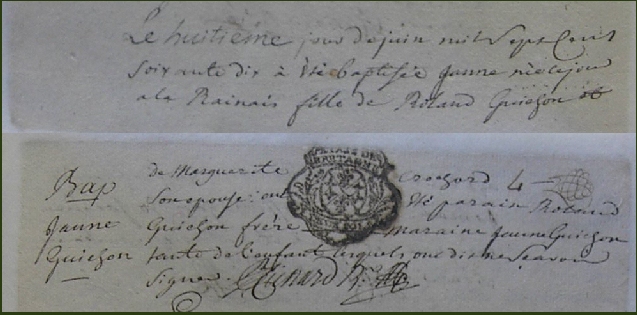 Le huitième jour de juin mil Sept Cent
Soixante dix a été baptisée janne née le jour
a la Rainais fille de Roland Guichon et
de Marguerite Crochard
Son epouse: ont été parain Roland
Guichon frère maraine janne Guichon
tante de l'enfant lesquels ont dis ne Scavoir
Signer.
Bap
janne
Guichon